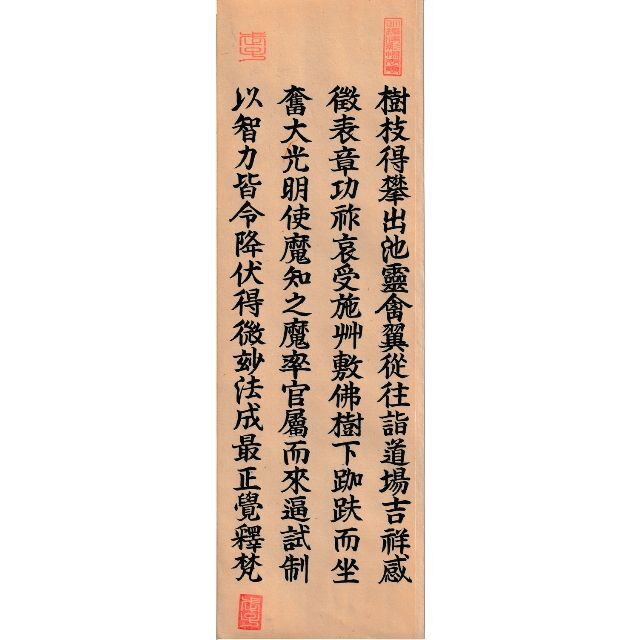 樹枝得攀出池靈禽翼從往詣道場吉祥感
徵表章功祚哀受施艸敷佛樹下跏趺而坐
奮大光明使魔知之魔率官屬而來逼試制
以智力皆令降伏得微妙法成最正覺釋梵